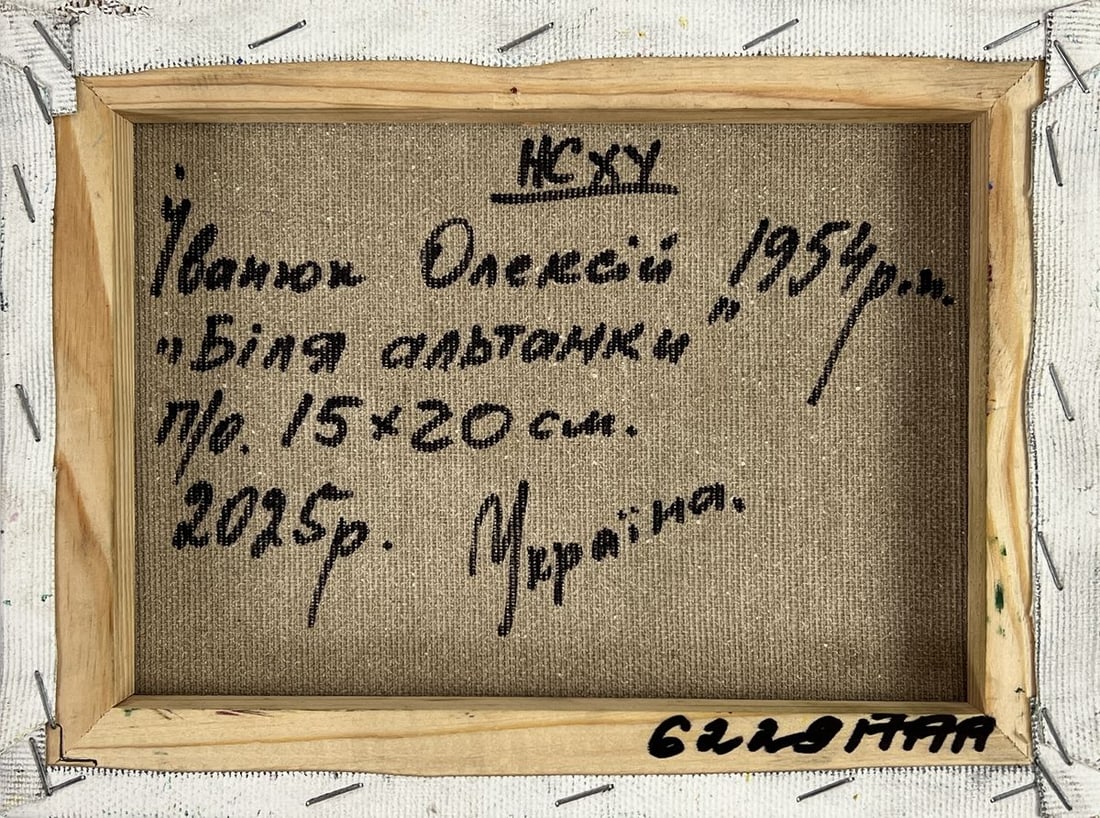 НСХУ
Іванюк Олексій 1954р.н.
„Біля альтанки"
п/о. 15×20 см.
2025р. Україна.
6228ІАА